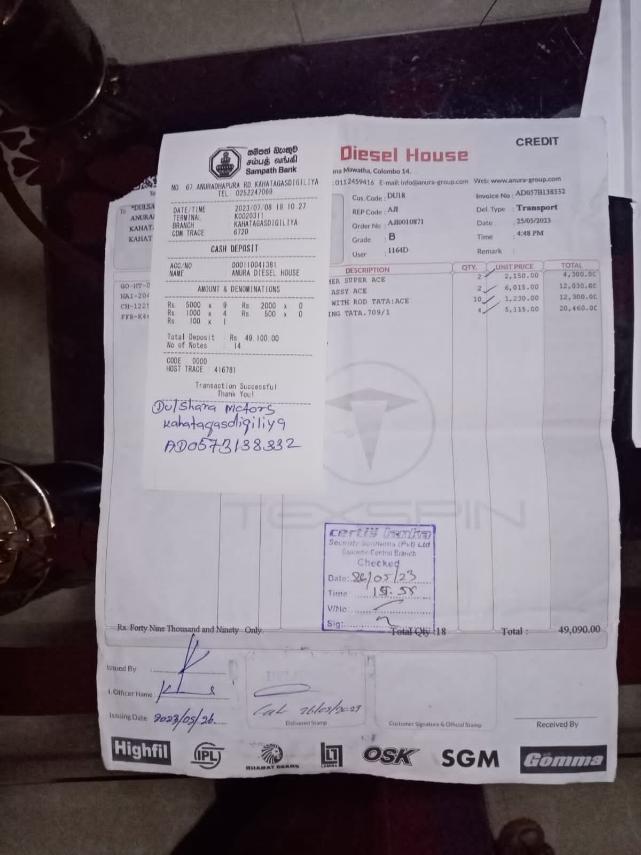 සම්පත් බැංකුව
சம்பத் வங்கி
Sampath Bank
NO 67 ANURADHAPURA RD, KAHATAGASDIGILIYA
TEL: 0252247069
DATE/TIME 2023/07/08 18:10:27
TERMINAL K0020311
BRANCH KAHATAGASDIGILIYA
CDM TRACE 6720
CASH DEPOSIT
ACC/NO 000110041381
NAME ANURA DIESEL HOUSE
AMOUNT & DENOMINATIONS
Rs 5000 x 9 Rs 2000 x 0
Rs 1000 x 4 Rs 500 x 0
Rs 100 x 1
Total Deposit : Rs 49,100.00
No of Notes : 14
CODE 0000
HOST TRACE : 416781
Transaction Successful
Thank You!
Dulshara motors
Kahatagasdigiliya
AD0573138332
CREDIT
Diesel House
Mawatha, Colombo 14.
0112459416 E-mail: info@anura-group.com Web: www.anura-group.com
To
ANURA
KAHAT
KAHAT
Cus. Code : DU18
REP Code : AJI
Order No : AJI0010871
Grade : B
User : 1164D
Invoice No : AD057B138332
Del. Type : Transport
Date : 25/05/2023
Time : 4:48 PM
Remark :
DESCRIPTION QTY. UNIT PRICE TOTAL
SUPER ACE 2 2,150.00 4,300.00
ASSY ACE 2 6,015.00 12,030.00
WITH ROD TATA:ACE 10 1,230.00 12,300.00
TATA.709/1 4 5,115.00 20,460.00
TEXSPIN
certis lanka
Security Solutions (Pvt) Ltd
Checked
Date: 26/05/23
Time 15.55
V/No
Sig:
Rs. Forty Nine Thousand and Ninety Only.
Total Qty :18
Total : 49,090.00
Issued By
Officer Name
Issuing Date 2023/05/26
26/05/2023
Delivered Stamp
Customer Signature & Official Stamp
Received By
Highfil
IPL
BHARAT GEARS
OSK
SGM
Gomma